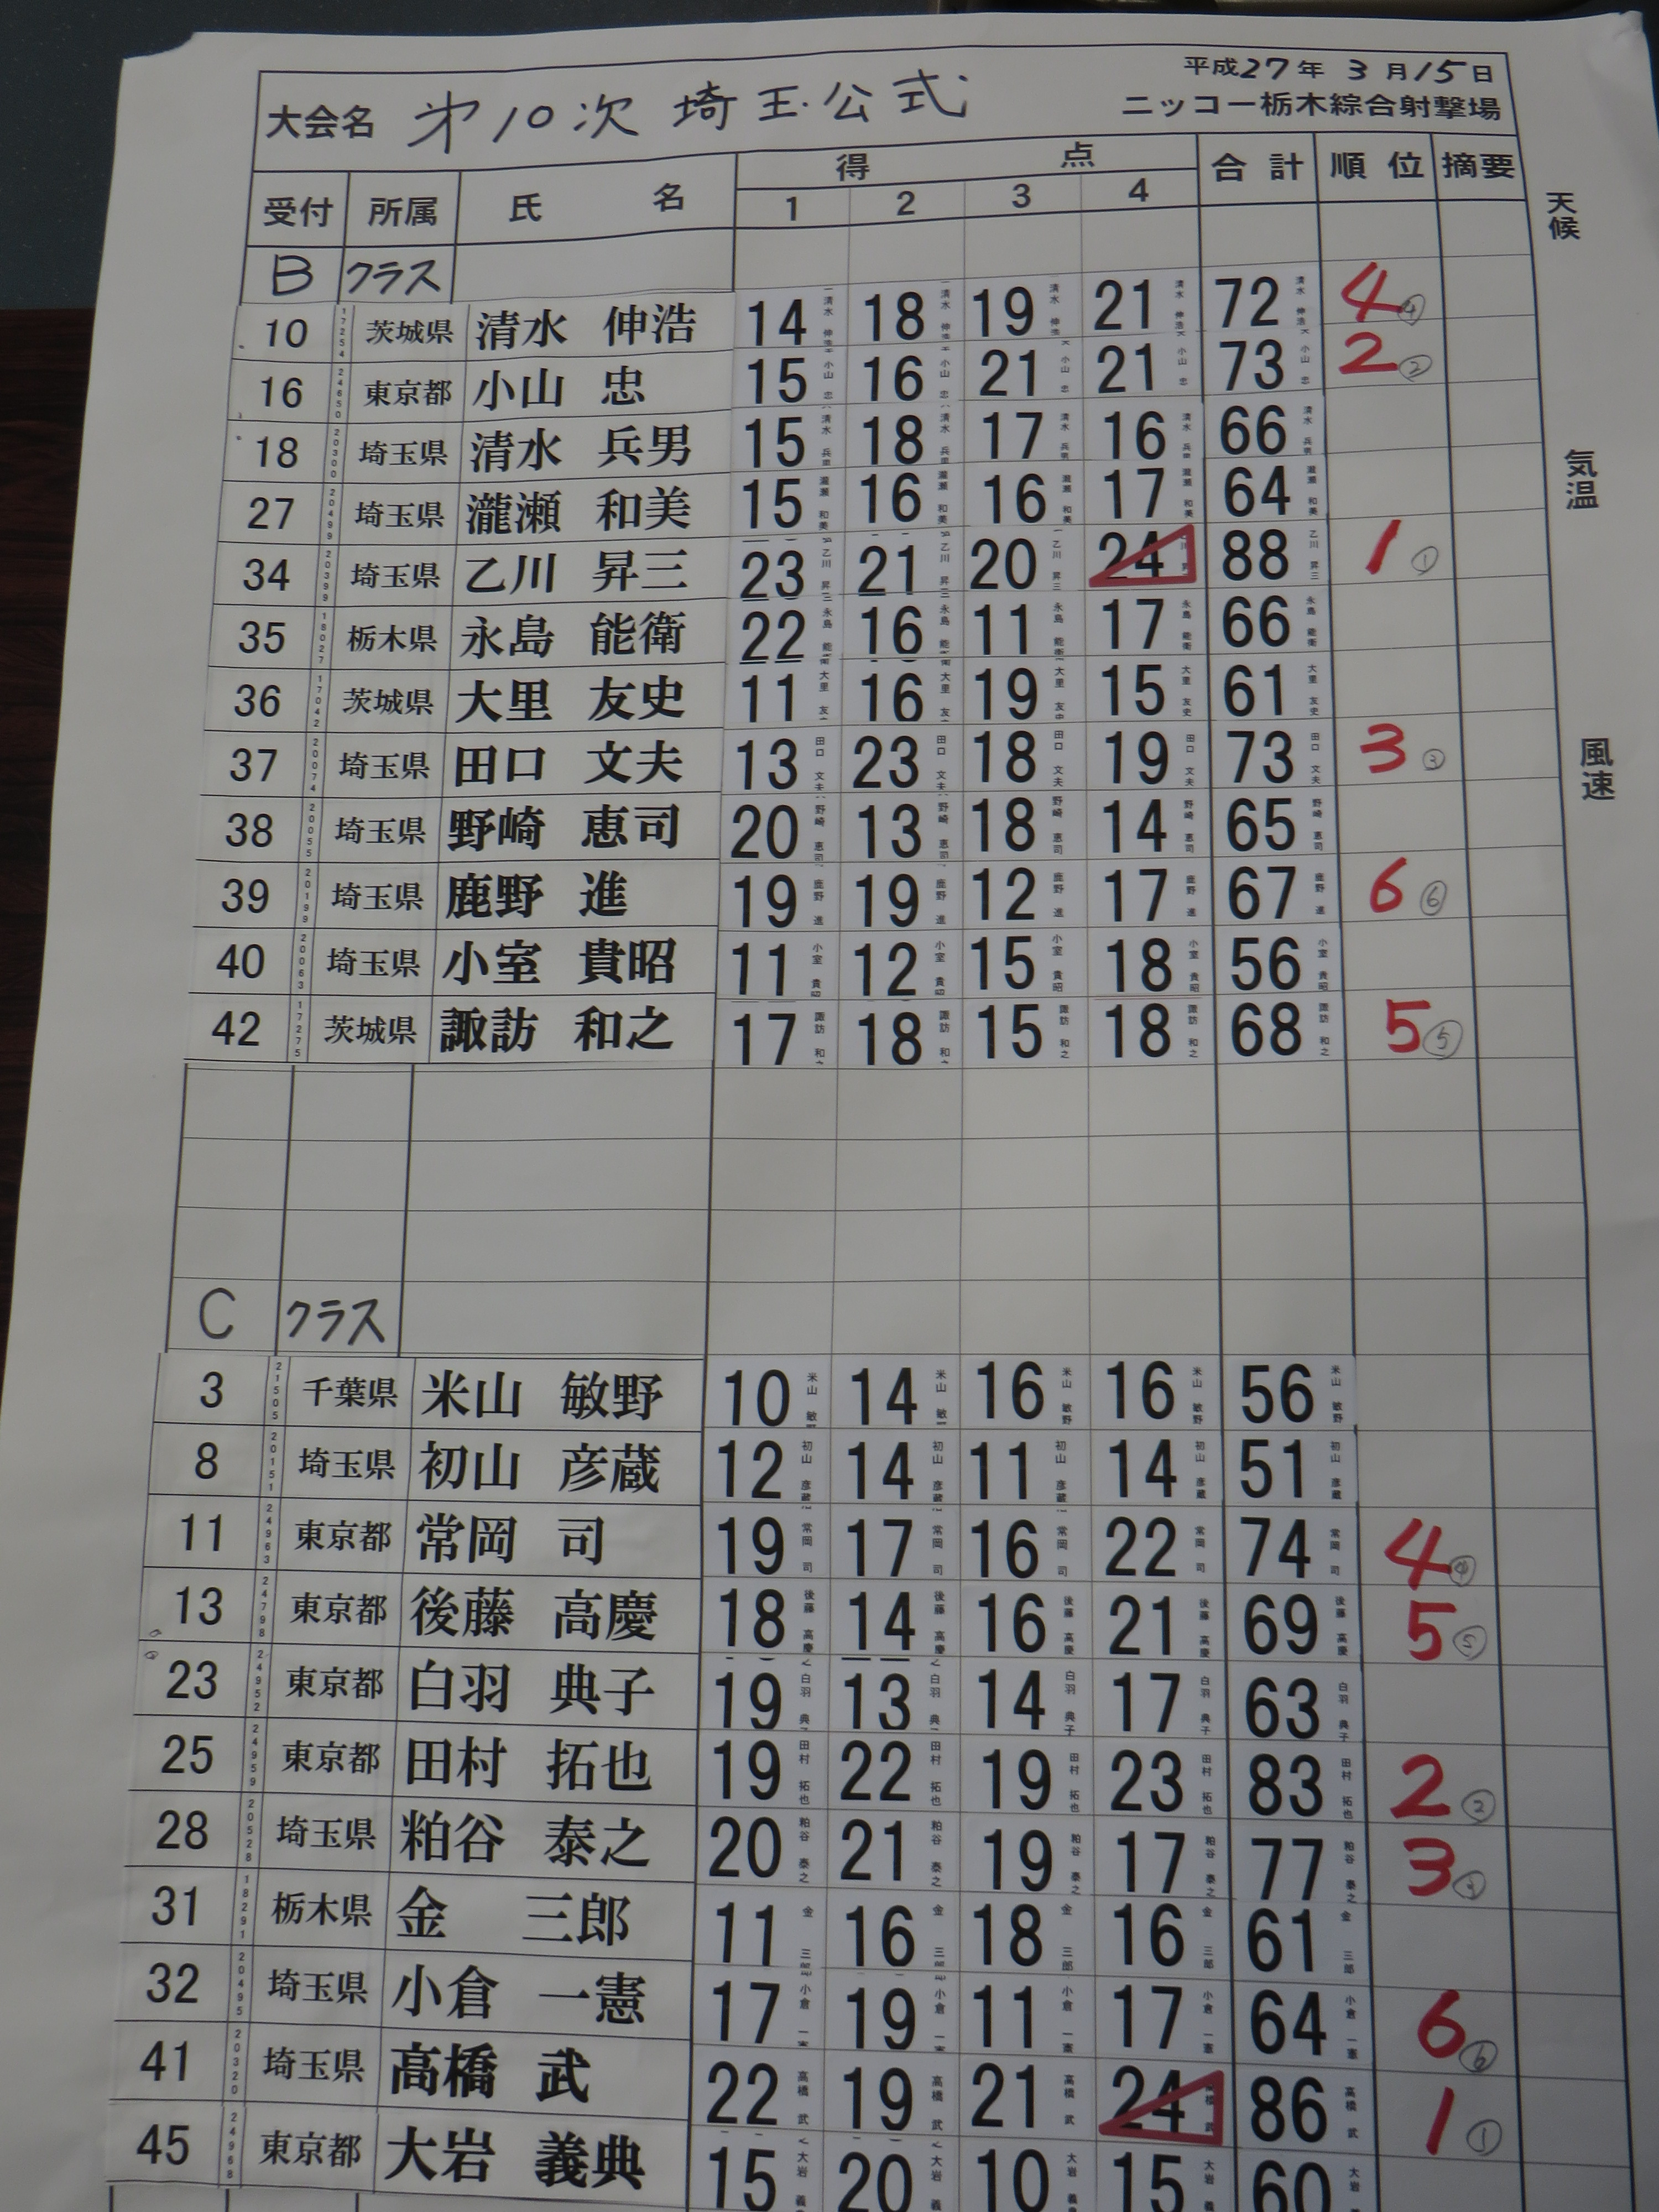 平成27年 3月15日
大会名 第10次 埼玉公式 ニッコー栃木綜合射撃場
受付 所属 氏名 得点 1 2 3 4 合計 順位 摘要
天候
気温
風速
B クラス
10 17254 茨城県 清水 伸浩 14 18 19 21 72 4 ④
16 24650 東京都 小山 忠 15 16 21 21 73 2 ②
18 20300 埼玉県 清水 兵男 15 18 17 16 66
27 20499 埼玉県 瀧瀬 和美 15 16 16 17 64
34 20399 埼玉県 乙川 昇三 23 21 20 24 88 1 ①
35 18027 栃木県 永島 能衛 22 16 11 17 66
36 17042 茨城県 大里 友史 11 16 19 15 61
37 20074 埼玉県 田口 文夫 13 23 18 19 73 3 ③
38 20055 埼玉県 野崎 恵司 20 13 18 14 65
39 20199 埼玉県 鹿野 進 19 19 12 17 67 6 ⑥
40 20063 埼玉県 小室 貴昭 11 12 15 18 56
42 17275 茨城県 諏訪 和之 17 18 15 18 68 5 ⑤
C クラス
3 21505 千葉県 米山 敏野 10 14 16 16 56
8 20151 埼玉県 初山 彦蔵 12 14 11 14 51
11 24963 東京都 常岡 司 19 17 16 22 74 4 ④
13 24798 東京都 後藤 高慶 18 14 16 21 69 5 ⑤
23 24952 東京都 白羽 典子 19 13 14 17 63
25 24959 東京都 田村 拓也 19 22 19 23 83 2 ②
28 20528 埼玉県 粕谷 泰之 20 21 19 17 77 3 ③
31 18291 栃木県 金 三郎 11 16 18 16 61
32 20495 埼玉県 小倉 一憲 17 19 11 17 64 6 ⑥
41 20320 埼玉県 高橋 武 22 19 21 24 86 1 ①
45 24968 東京都 大岩 義典 15 20 10 15 60